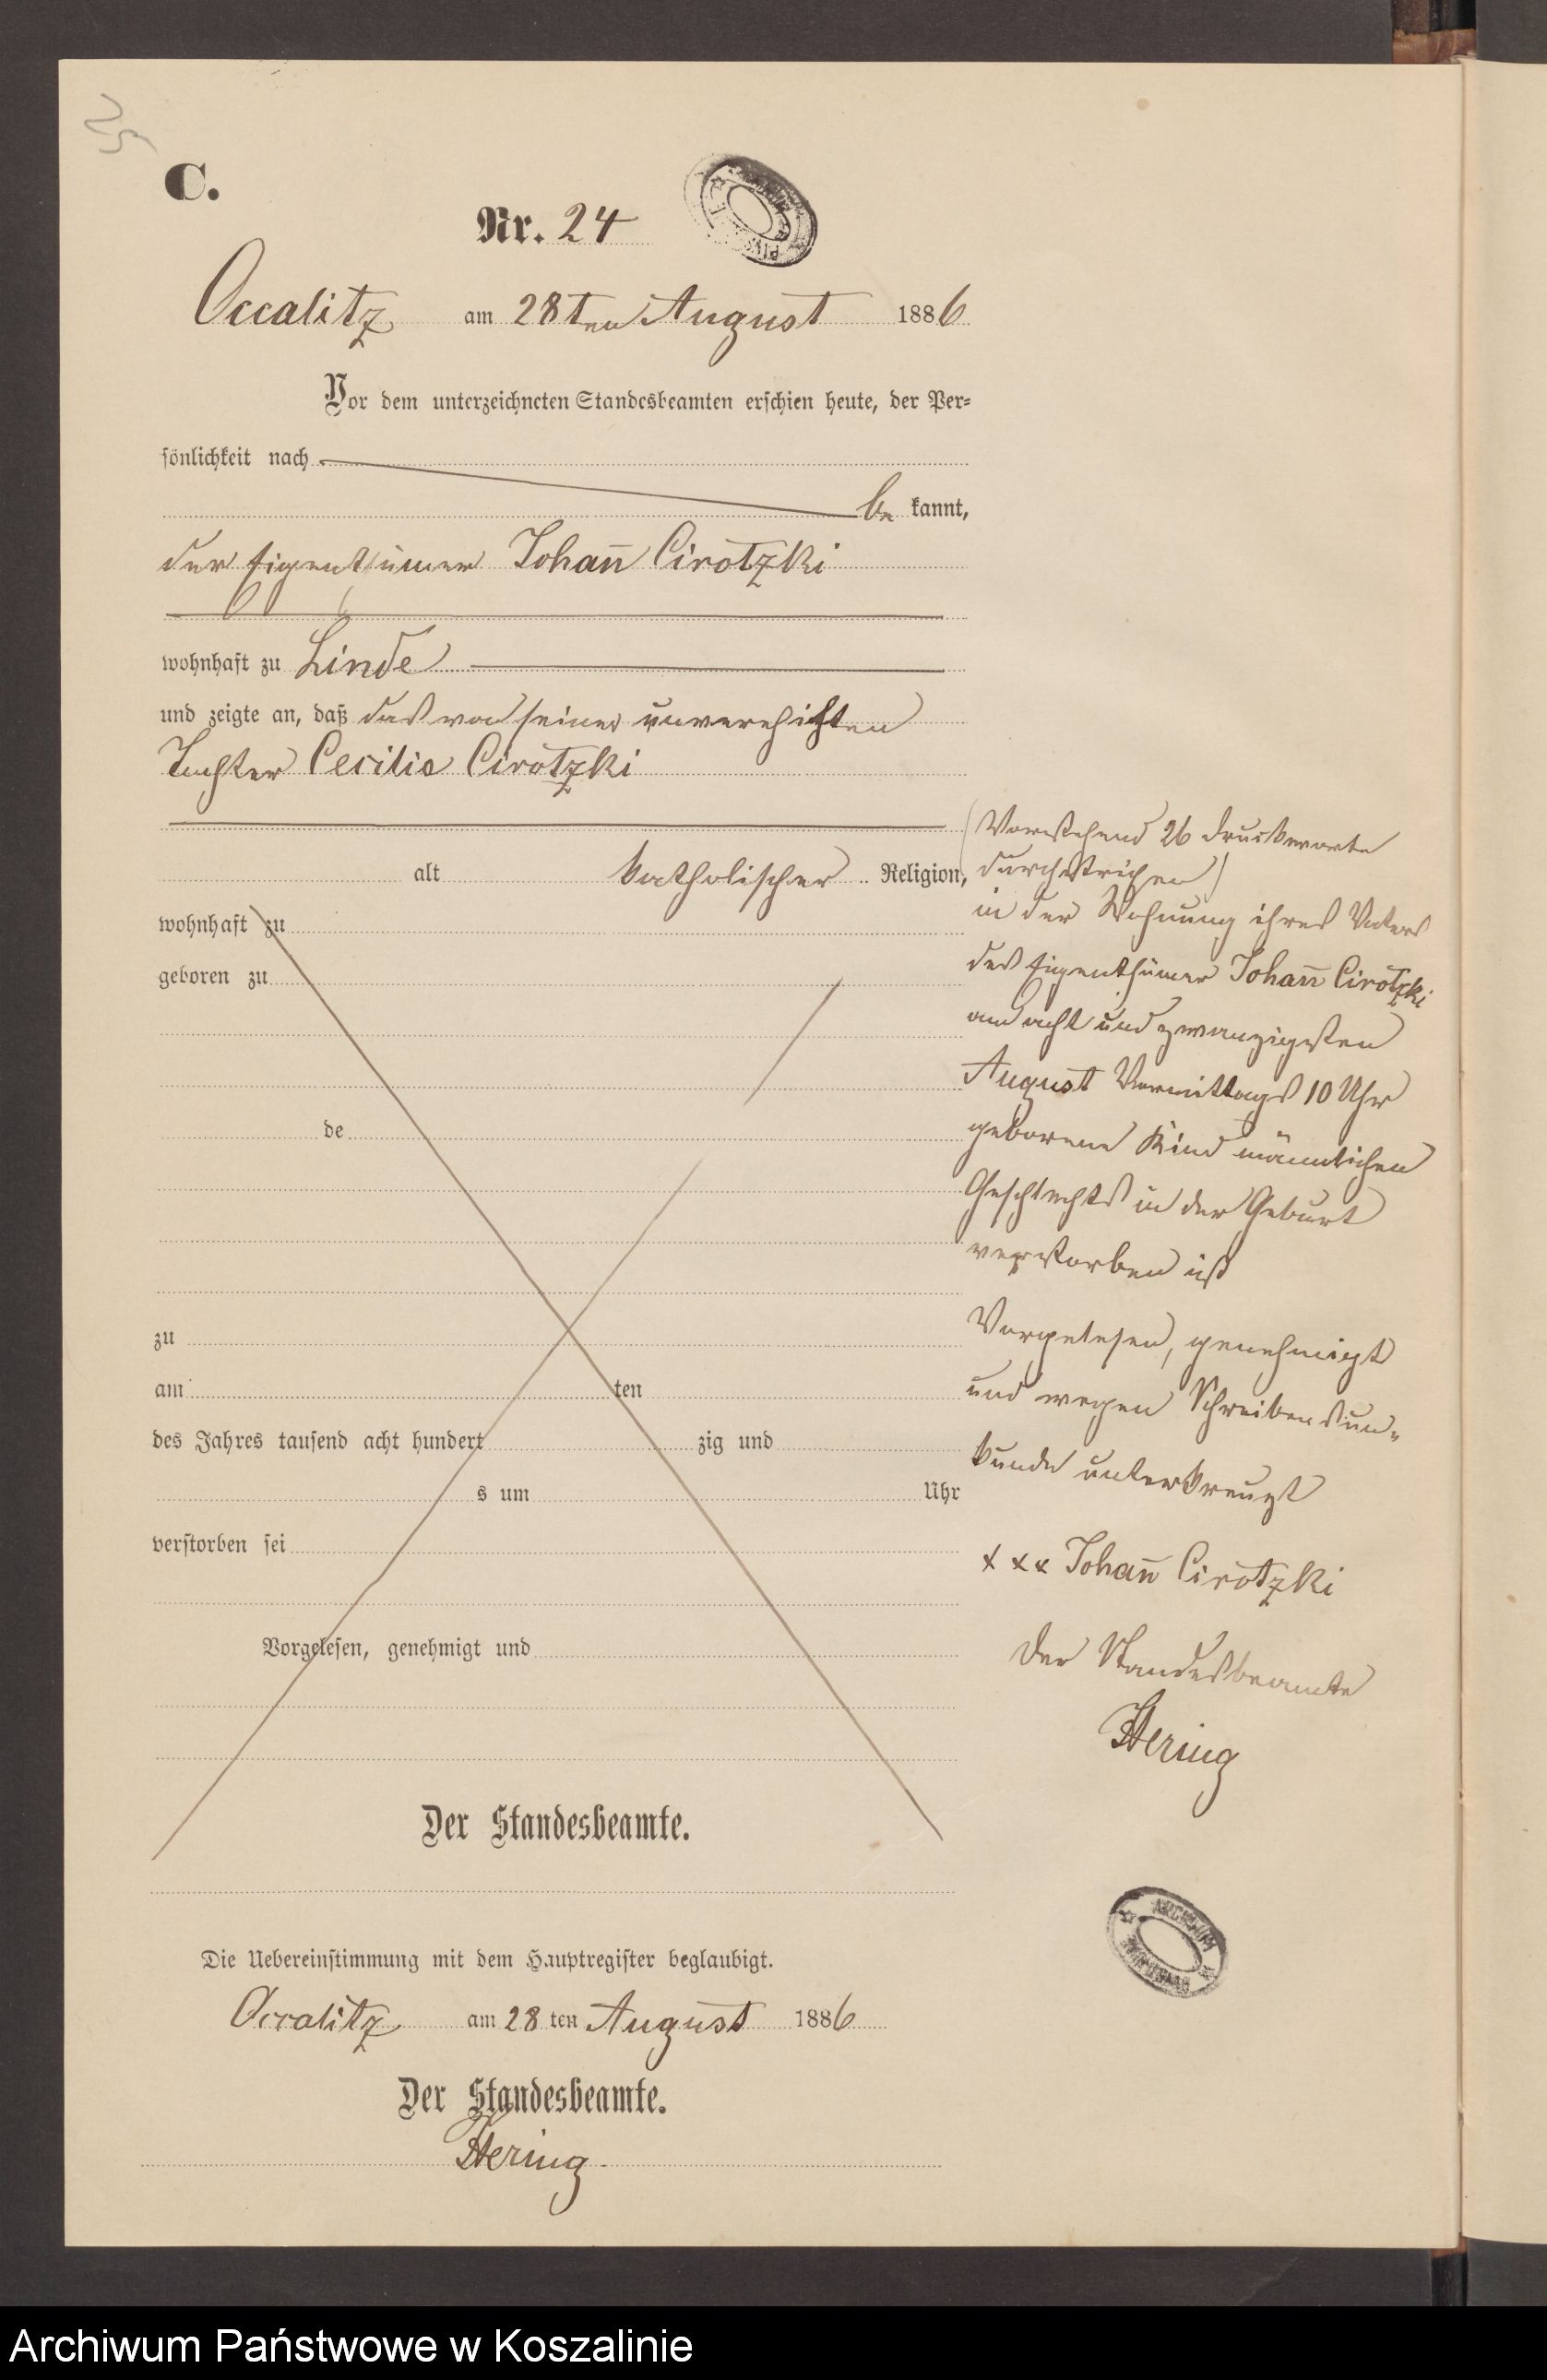 25
C.
Nr. 24
Occalitz am 28ten August 1886
Vor dem unterzeichneten Standesbeamten erschien heute, der Per=
sönlichkeit nach
be kannt,
der Eigenthümer Johañ Cirotzki
wohnhaft zu Linde
und zeigte an, daß das von seiner unverehlichten
Tochter Cecilie Cirotzki
alt katholischer Religion,
wohnhaft zu
geboren zu
de
zu
am ten
des Jahres tausend acht hundert zig und
s um Uhr
verstorben sei
Vorgelesen, genehmigt und
Der Standesbeamte.
(Vorstehend 26 Druckworte
durchstrichen)
in der Wohnung ihres Vaters
des Eigenthümer Johañ Cirotzki
am acht und zwanzigsten
August Vormittags 10 Uhr
geborene Kind männlichen
Geschlechts in der Geburt
verstorben ist
Vorgelesen, genehmigt
und wegen Schreibensun=
kunde unterkreuzt
xxx Johañ Cirotzki
Der Standesbeamte
Hering
ARCHIWUM
Die Uebereinstimmung mit dem Hauptregister beglaubigt.
Occalitz am 28 ten August 1886
Der Standesbeamte.
Hering
Archiwum Państwowe w Koszalinie